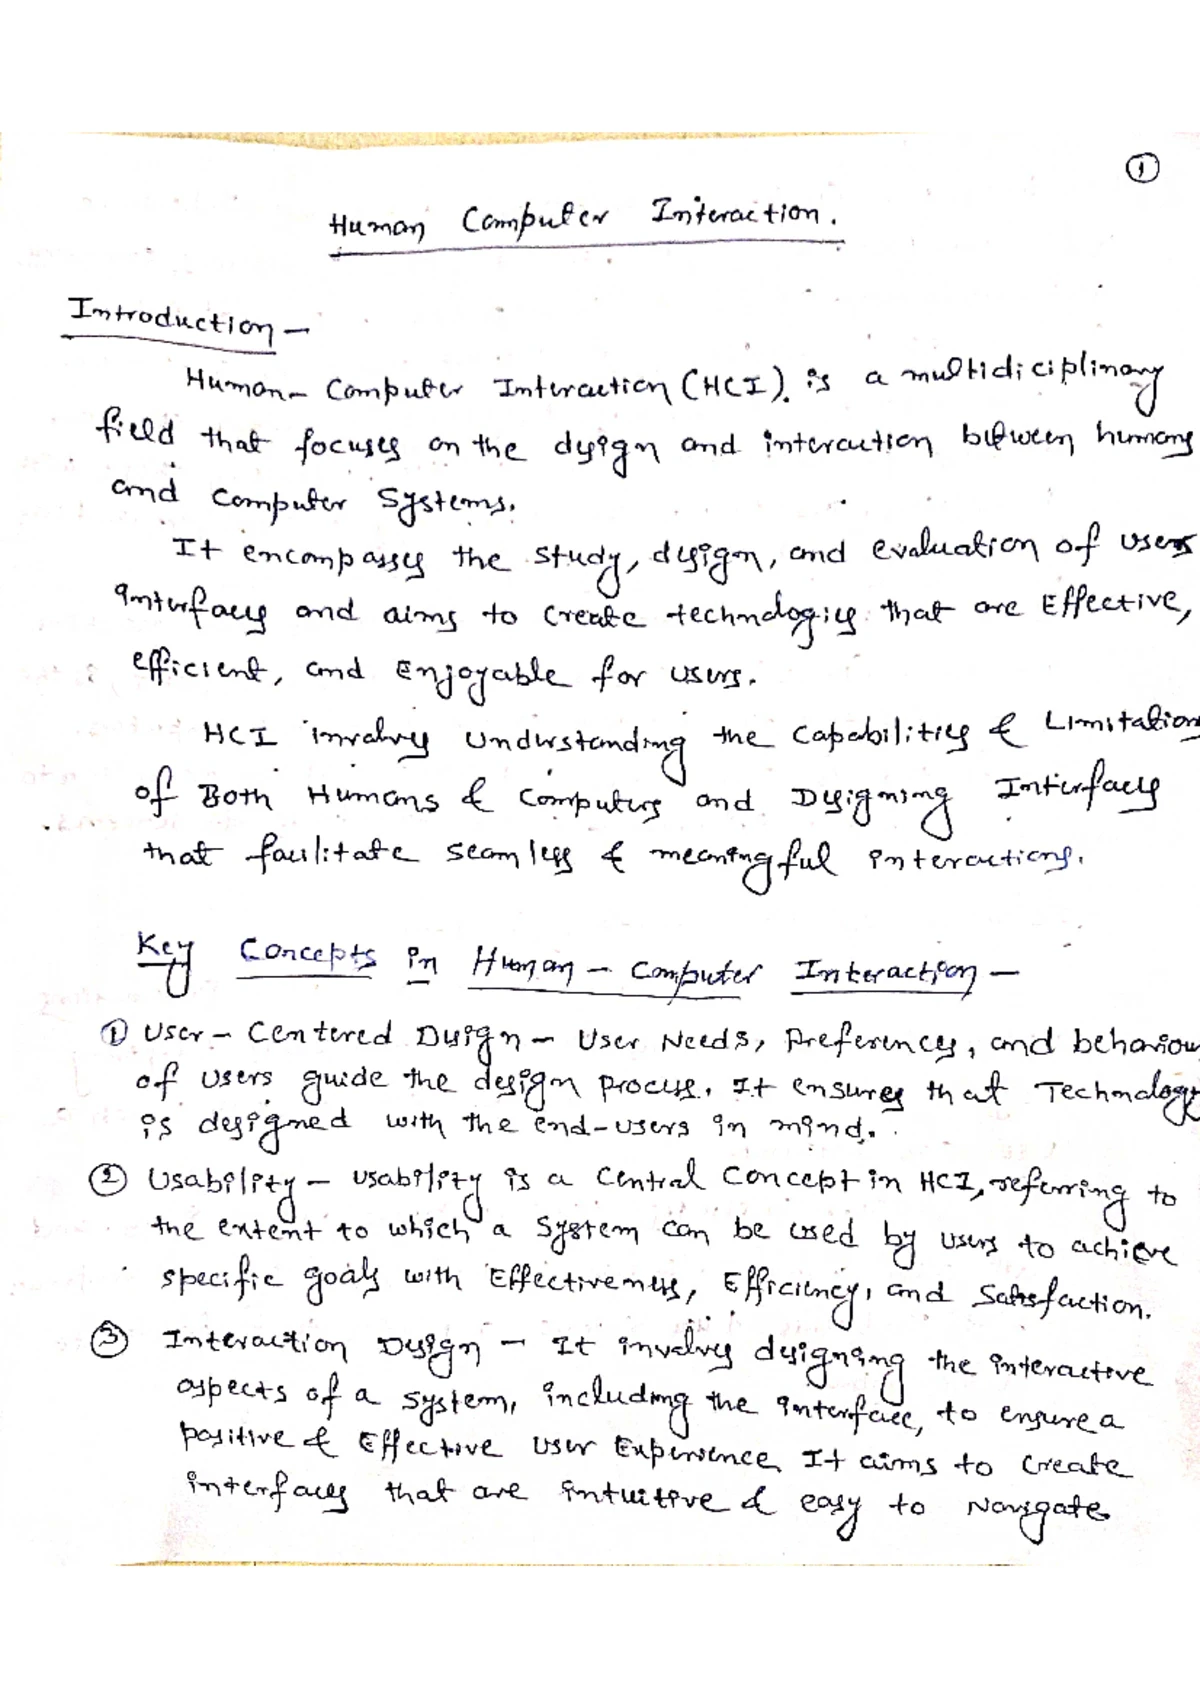 1
Human Computer Interaction.
Introduction —
Human - Computer Interaction (HCI). is a multidiciplinary
field that focuses on the design and interaction between humans
and computer systems.
It encompasses the study, design, and evaluation of users
interfaces and aims to create technologies that are Effective,
efficient, and Enjoyable for users.
HCI involves understanding the capabilities & Limitation
of Both Humans & computers and Designing Interfaces
that facilitate seamless & meaningful interactions.
Key Concepts in Human - Computer Interaction —
① User - Centered Design - User Needs, Preferences, and behaviou
of users guide the design process. It ensures that Technology
is designed with the end-users in mind.
② Usability - usability is a central concept in HCI, referring to
the extent to which a system can be used by users to achieve
specific goals with Effectiveness, Efficiency, and Satisfaction.
③ Interaction Design - It involves designing the interactive
aspects of a system, including the interface, to ensure a
positive & Effective User Experience. It aims to create
interfaces that are intuitive & easy to Navigate